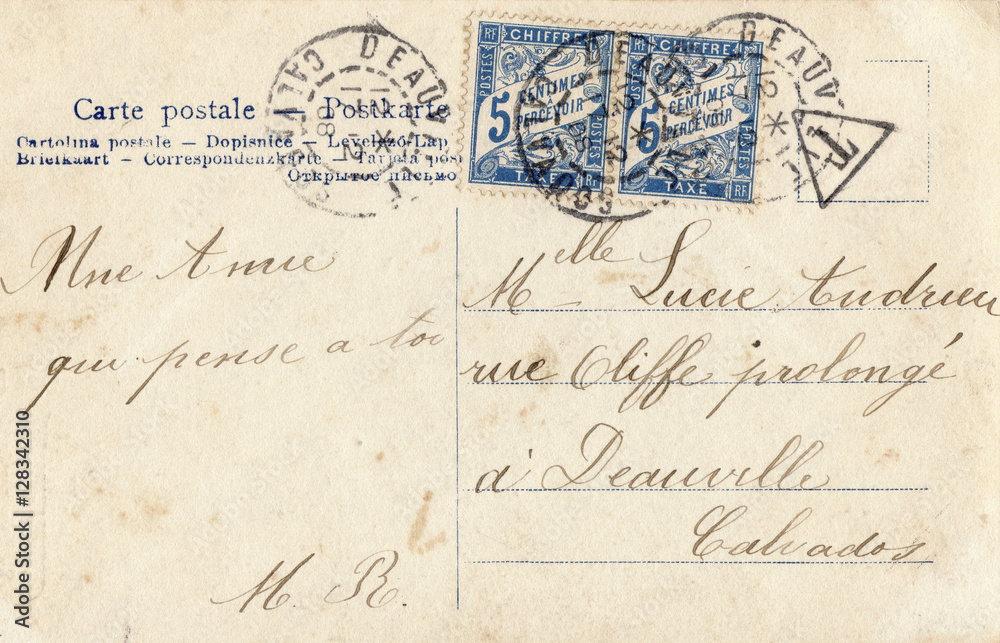 Carte postale — Postkarte
Cartolina postale – Dopisnice – Levelező-Lap
Briefkaart – Correspondenzkarte – Tarjeta post
Открытое письмо
RF CHIFFRE
POSTES
5 CENTIMES À PERCEVOIR
POSTES
TAXE
CHIFFRE RF
5 CENTIMES À PERCEVOIR
POSTES
TAXE RF
DEAUV
CALV
DEAUV
CALVADOS
DEAUV
T
Une Amie
qui pense a toi
M. R.
Melle Lucie Andrieu
rue Oliffe prolongé
à Deauville
Calvados
Adobe Stock | #128342310